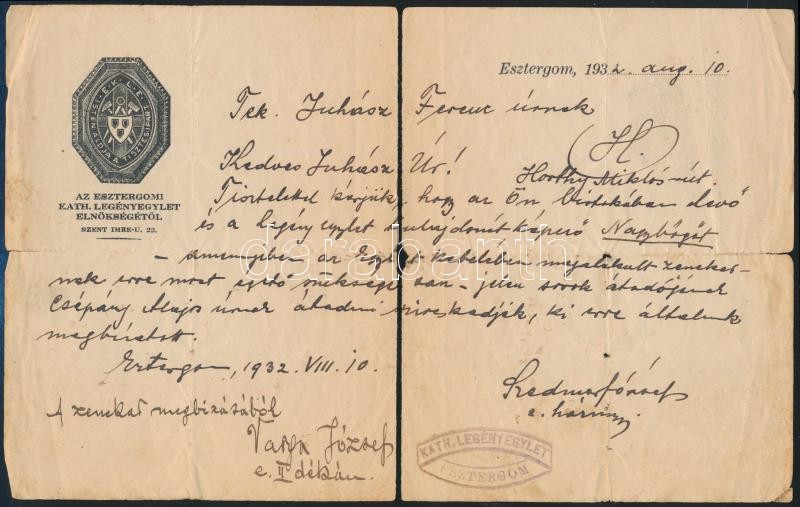 E.K.L.E.
ISTEN ÁLDJA A TISZTES IPART
AZ ESZTERGOMI
KATH. LEGÉNYEGYLET
ELNÖKSÉGÉTŐL
SZENT IMRE-U. 22.
Esztergom, 1932. aug. 10.
Tek. Juhász Ferenc úrnak
H.
Horthy Miklós-út.
Kedves Juhász Úr!
Tisztelettel kérjük, hogy az Ön birtokában levő
és a legényegylet tulajdonát képező Nagybőgőt
– amennyiben az Egylet kebelében megalakult zenekar-
nak erre most égető szüksége van – jelen sorok átadójának
Csépány Alajos úrnak átadni szíveskedjék, ki erre általunk
megbizatott.
Esztergom, 1932. VIII. 10.
A zenekar megbizásából
Varga József
e. II dékán.
József
e.
KATH. LEGÉNYEGYLET
ESZTERGOM
darabanth